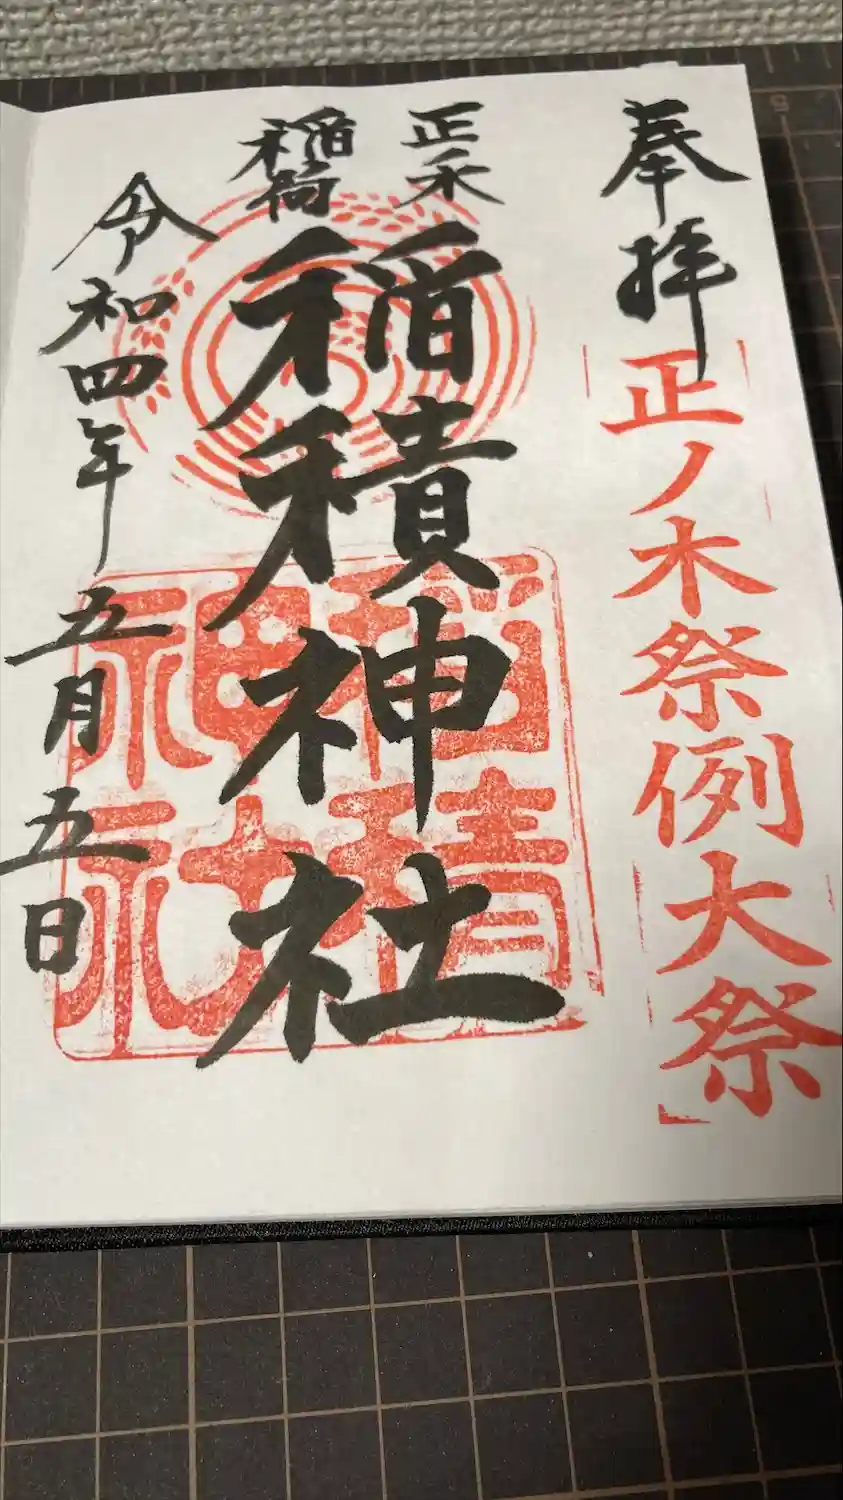 奉拝
正ノ木祭例大祭
正木
稲荷
稲積神社
稲積神社
令和四年五月五日